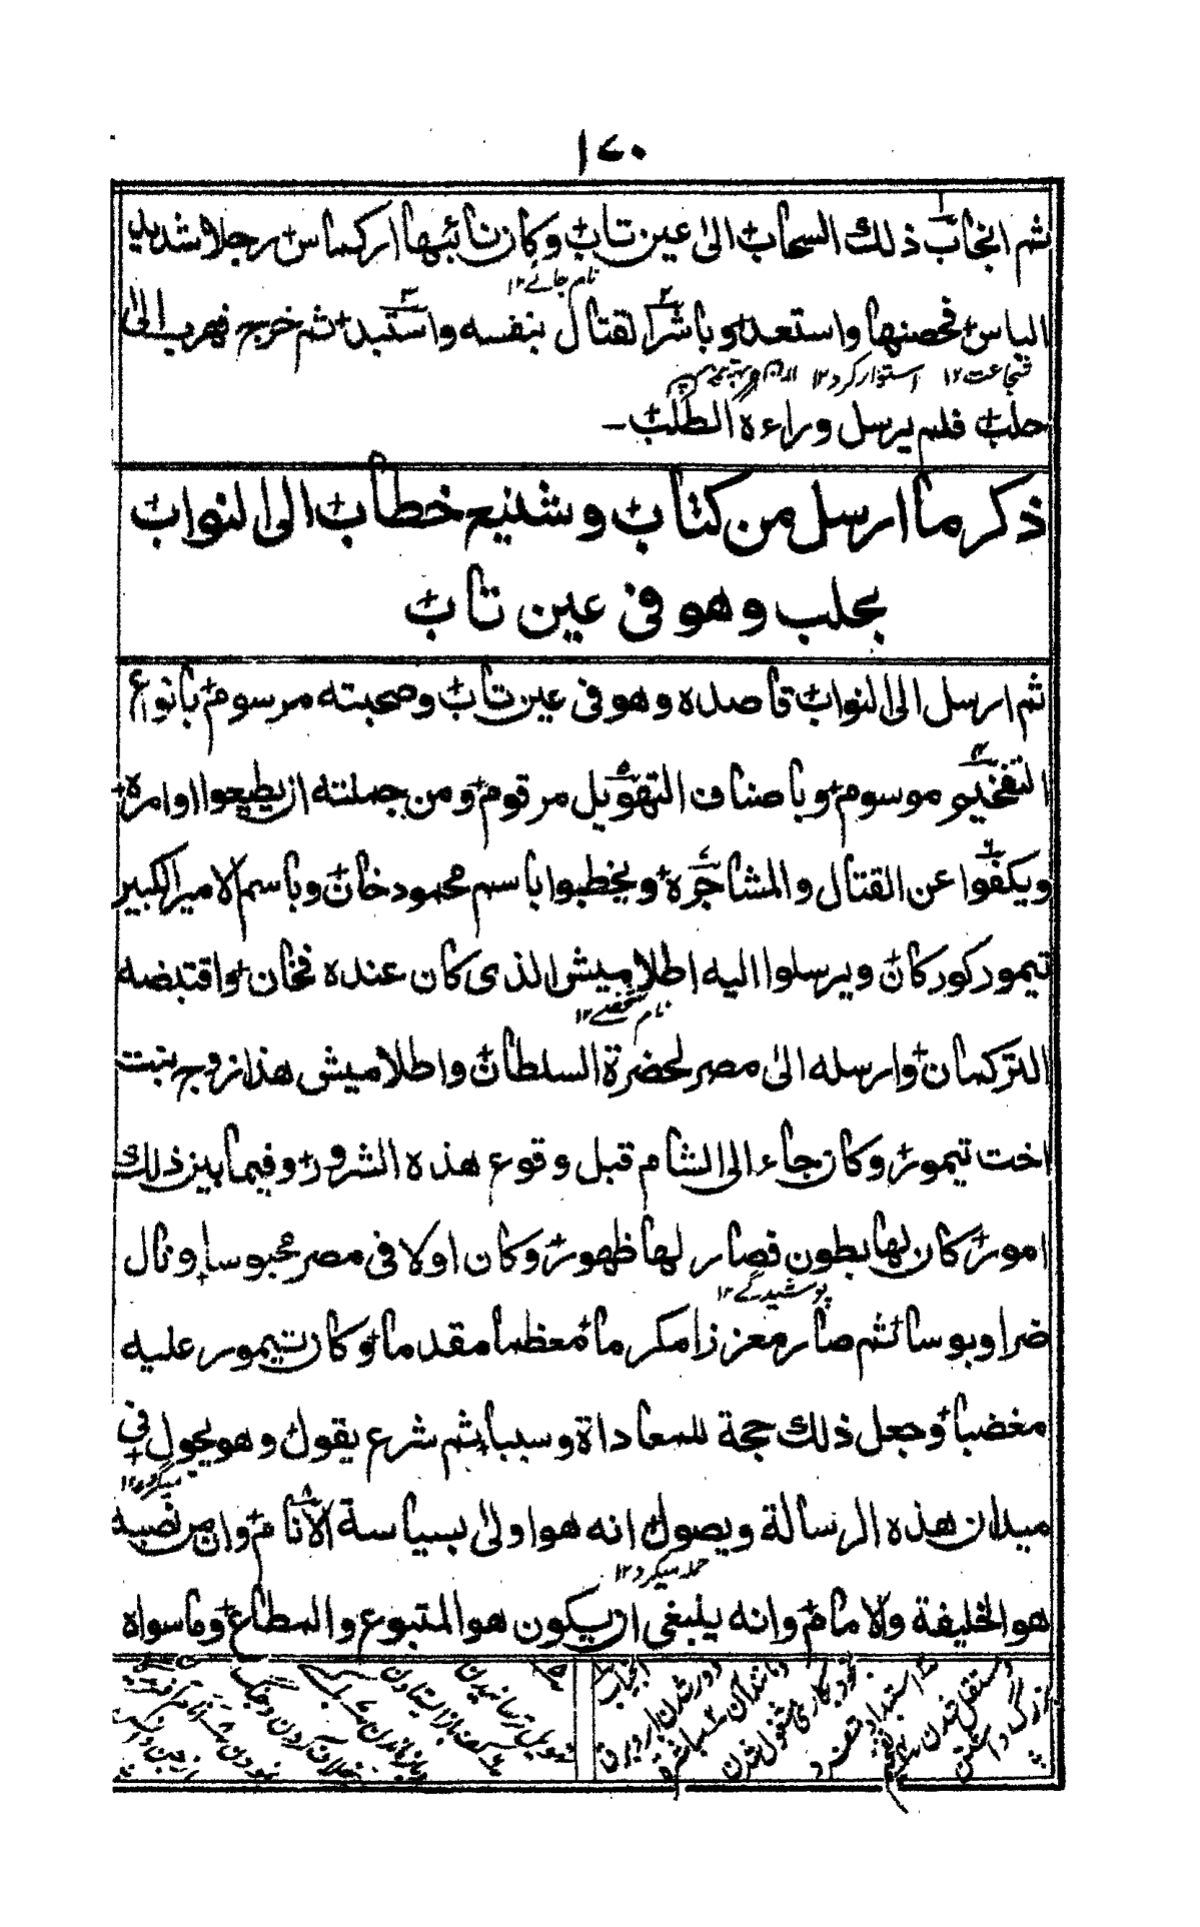 ١٧٠
ثم انجاب ذلك السحاب الى عين تاب وكان نائبها اركماس رجلا شديد
نام جائے ١٢
الباس فحصنها واستعد وباشر القتال بنفسه واستبد ثم خرج فهرب الى
شجاعت ١٢ استوار كرد ١٢
حلب فلم يرسل وراءه الطلب
ذكر ما ارسل من كتاب وشنيع خطاب الى النواب
بحلب وهو فى عين تاب
ثم ارسل الى النواب قاصده وهو فى عين تاب وصحبته مرسوم بانواع
التفخيم موسوم وباصناف التهويل مرقوم ومن جملته ان يطيعوا اوامره
ويكفوا عن القتال والمشاجرة ويخطبوا باسم محمود خان وباسم الامير الكبير
تيمور كوركان ويرسلوا اليه اطلاميش الذى كان عنده فخان واقتبضه
نام شخصے ١٢
التركمان وارسله الى مصر لحضرة السلطان واطلاميش هذا زوج بنت
اخت تيمور وكان جاء الى الشام قبل وقوع هذه الشرور وفيما بين ذلك
امور كان لها بطون فصار لها ظهور وكان اولا فى مصر محبوسا ونال
پوشيدگے ١٢
ضرا وبوسا ثم صار معززا مكرما معظما مقدما وكان تيمور عليه
مغضبا وجعل ذلك حجة للمعاداة وسببا ثم شرع يقول وهو يجول فى
ميگردد ١٢
ميدان هذه الرسالة ويصول انه هو اولى بسياسة الانام وان من نصبه
حمله ميكرد ١٢
هو الخليفة والامام وانه ينبغى ان يكون هو المتبوع والمطاع وما سواه